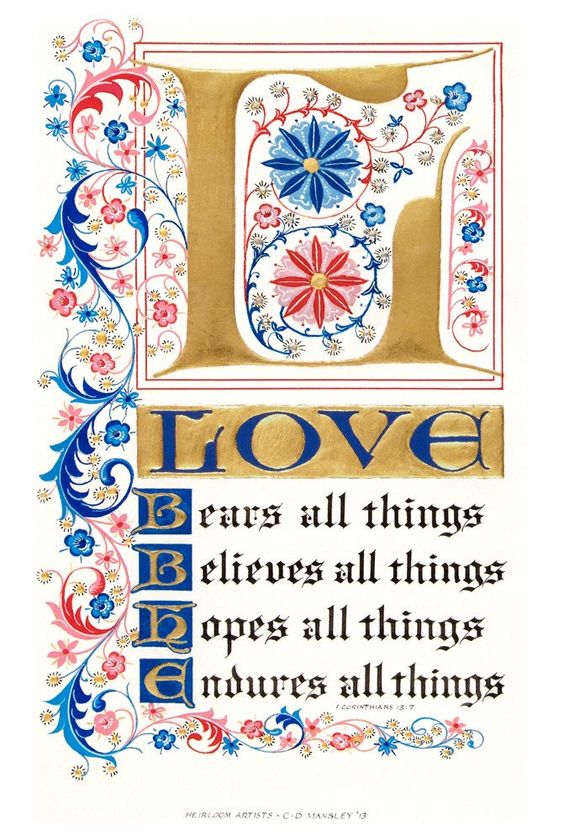 L
LOVE
Bears all things
Believes all things
Hopes all things
Endures all things
I CORINTHIANS 13:7
HEIRLOOM ARTISTS · C·D MANSLEY '13